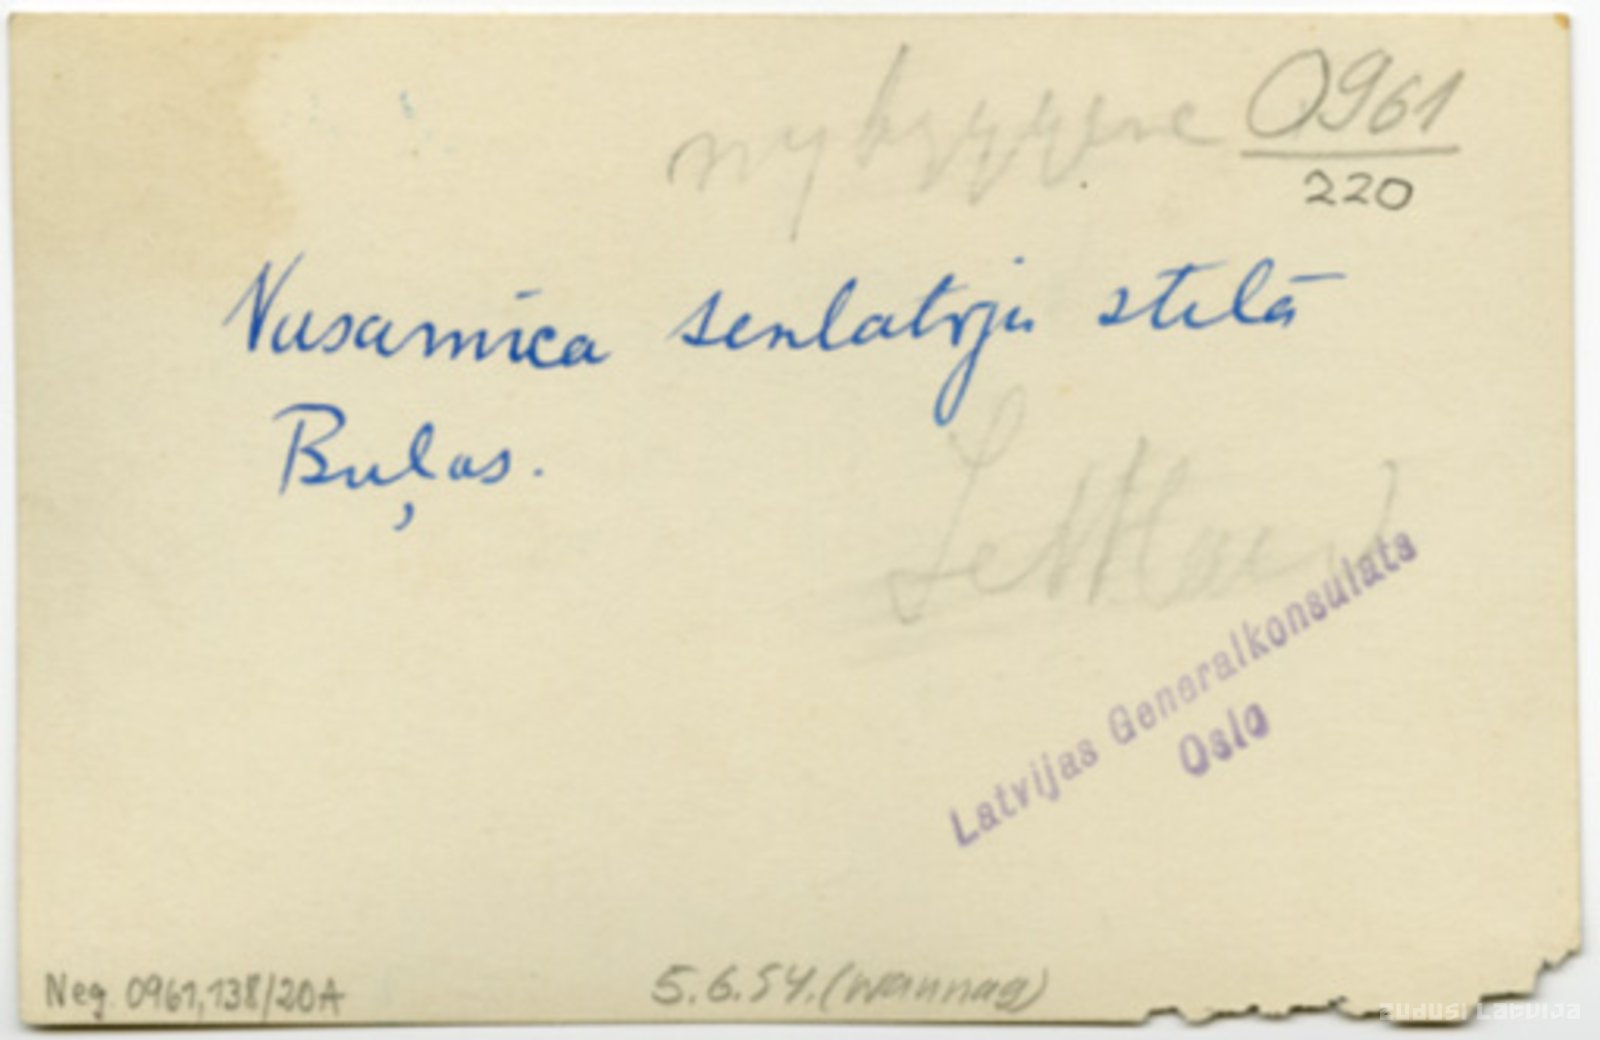 nybyggere 0961
220
Vasarnīca senlatvju stilā
Buļļos.
Lettland
Latvijas Generalkonsulats
Oslo
Neg. 0961,138/20A
5.6.54. (Wannag)
zudusi Latvija